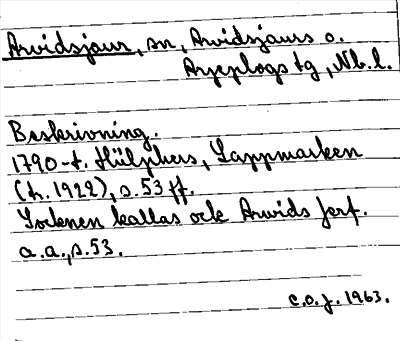 Arvidsjaur, sn, Arvidsjaurs o.
Arjeplogs tg, Nb.l.
Beskrivning.
1790-t. Hülphers, Lappmarken
(tr. 1922), s. 53 ff.
Socknen kallas ock Arvids Jerf.
a.a., s. 53.
C.O.J. 1963.